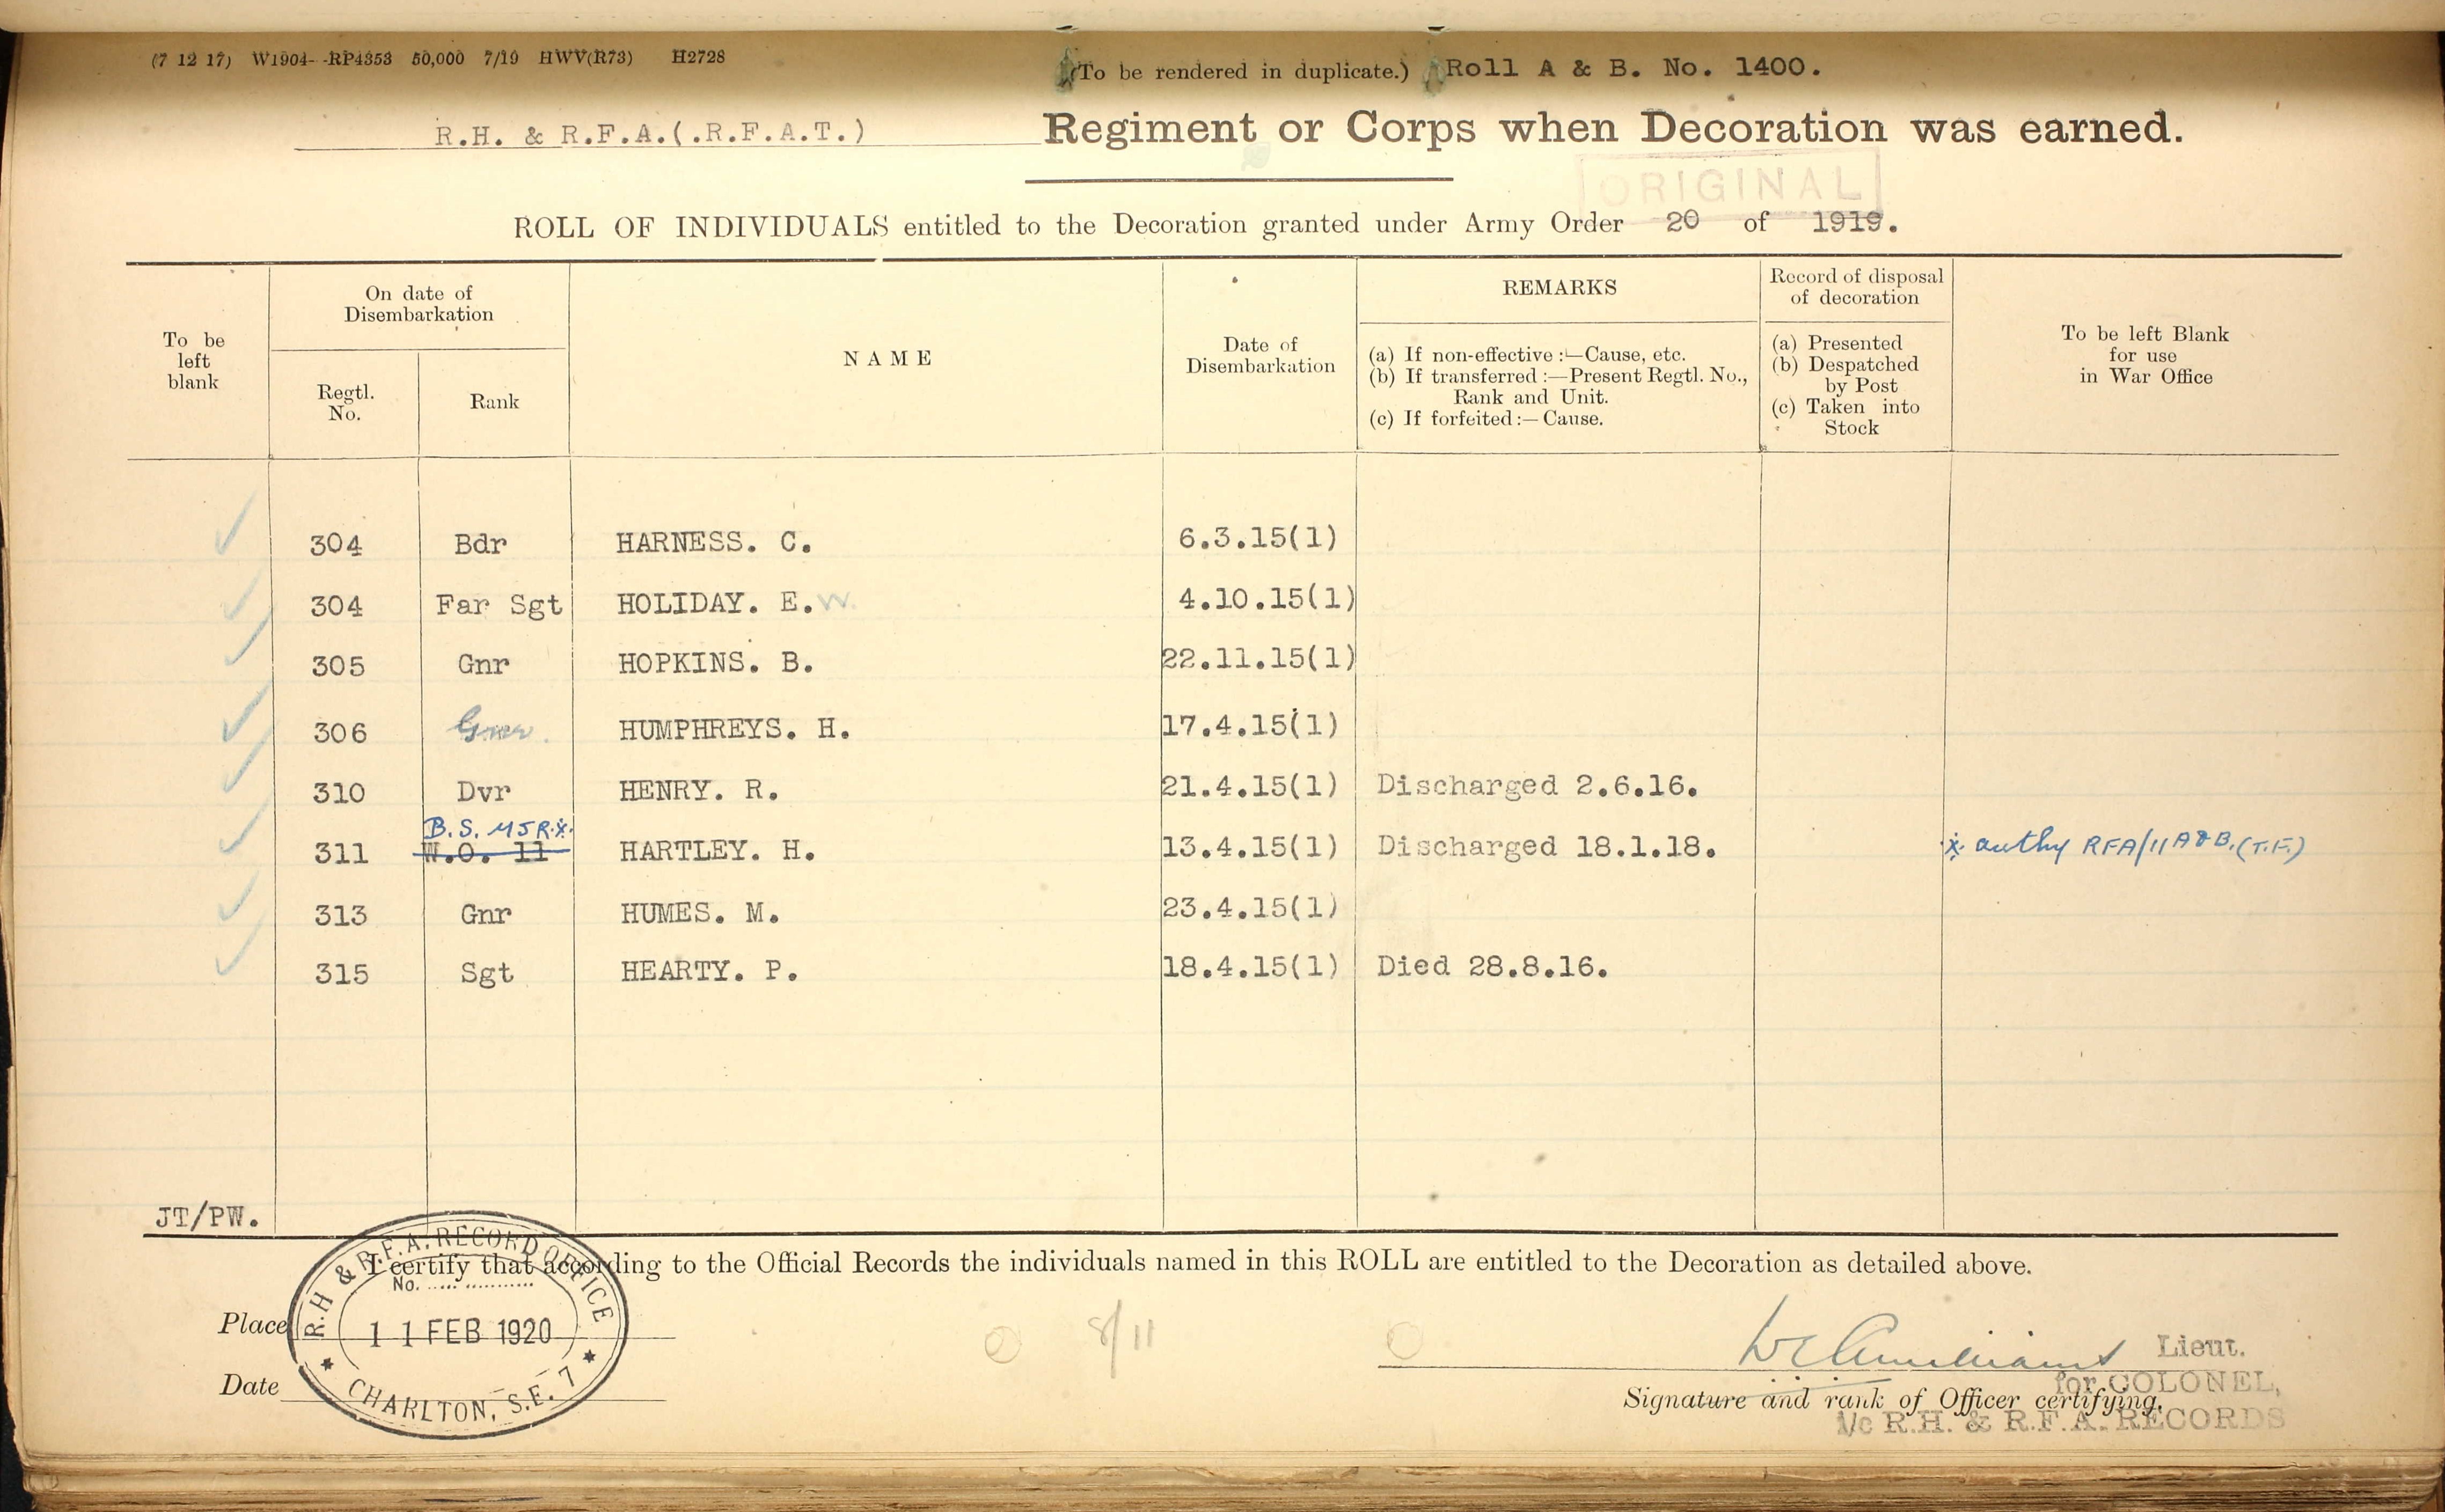 (7 12 17) W1904--RP4353 50,000 7/19 HWV(R73) H2728
(To be rendered in duplicate.) Roll A & B. No. 1400.
R.H. & R.F.A.(.R.F.A.T.) Regiment or Corps when Decoration was earned.
ORIGINAL
ROLL OF INDIVIDUALS entitled to the Decoration granted under Army Order 20 of 1919.
To be left blank
On date of Disembarkation
Regtl. No.
Rank
NAME
Date of Disembarkation
REMARKS
(a) If non-effective :—Cause, etc.
(b) If transferred :—Present Regtl. No., Rank and Unit.
(c) If forfeited :—Cause.
Record of disposal of decoration
(a) Presented
(b) Despatched by Post
(c) Taken into Stock
To be left Blank for use in War Office
304 Bdr HARNESS. C. 6.3.15(1)
304 Far Sgt HOLIDAY. E. W. 4.10.15(1)
305 Gnr HOPKINS. B. 22.11.15(1)
306 Gnr. HUMPHREYS. H. 17.4.15(1)
310 Dvr HENRY. R. 21.4.15(1) Discharged 2.6.16.
B.S. MJR.※.
311 W.O. 11 HARTLEY. H. 13.4.15(1) Discharged 18.1.18. ※ authy RFA/11 A & B. (T.F.)
313 Gnr HUMES. M. 23.4.15(1)
315 Sgt HEARTY. P. 18.4.15(1) Died 28.8.16.
JT/PW.
I certify that according to the Official Records the individuals named in this ROLL are entitled to the Decoration as detailed above.
R.H & R.F.A. RECORD OFFICE
No.
11 FEB 1920
CHARLTON, S.E. 7
Place
Date
8/11
Lieut.
for COLONEL,
Signature and rank of Officer certifying.
i/c R.H. & R.F.A. RECORDS